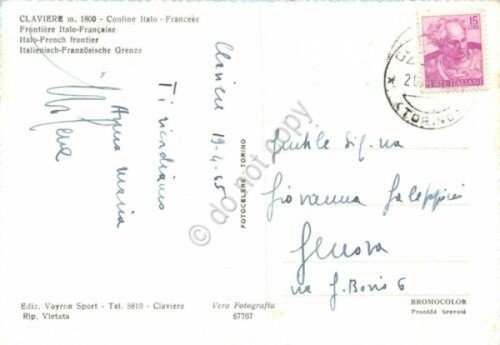 CLAVIERE m. 1800 - Confine Italo - Francese
Frontière Italo-Française
Italo-French frontier
Italienisch-Französische Grenze
Claviere 19-4-65
Ti ricordiamo
Anna Maria
15
POSTE ITALIANE
(TORINO)
Gentile Sig.na
Giovanna
Genova
via G. Boris 6
FOTOCELERE TORINO
do not copy
Ediz. Voyron Sport - Tel. 8810 - Claviere
Rip. Vietata
Vera Fotografia
67767
BROMOCOLOR
Procédé breveté